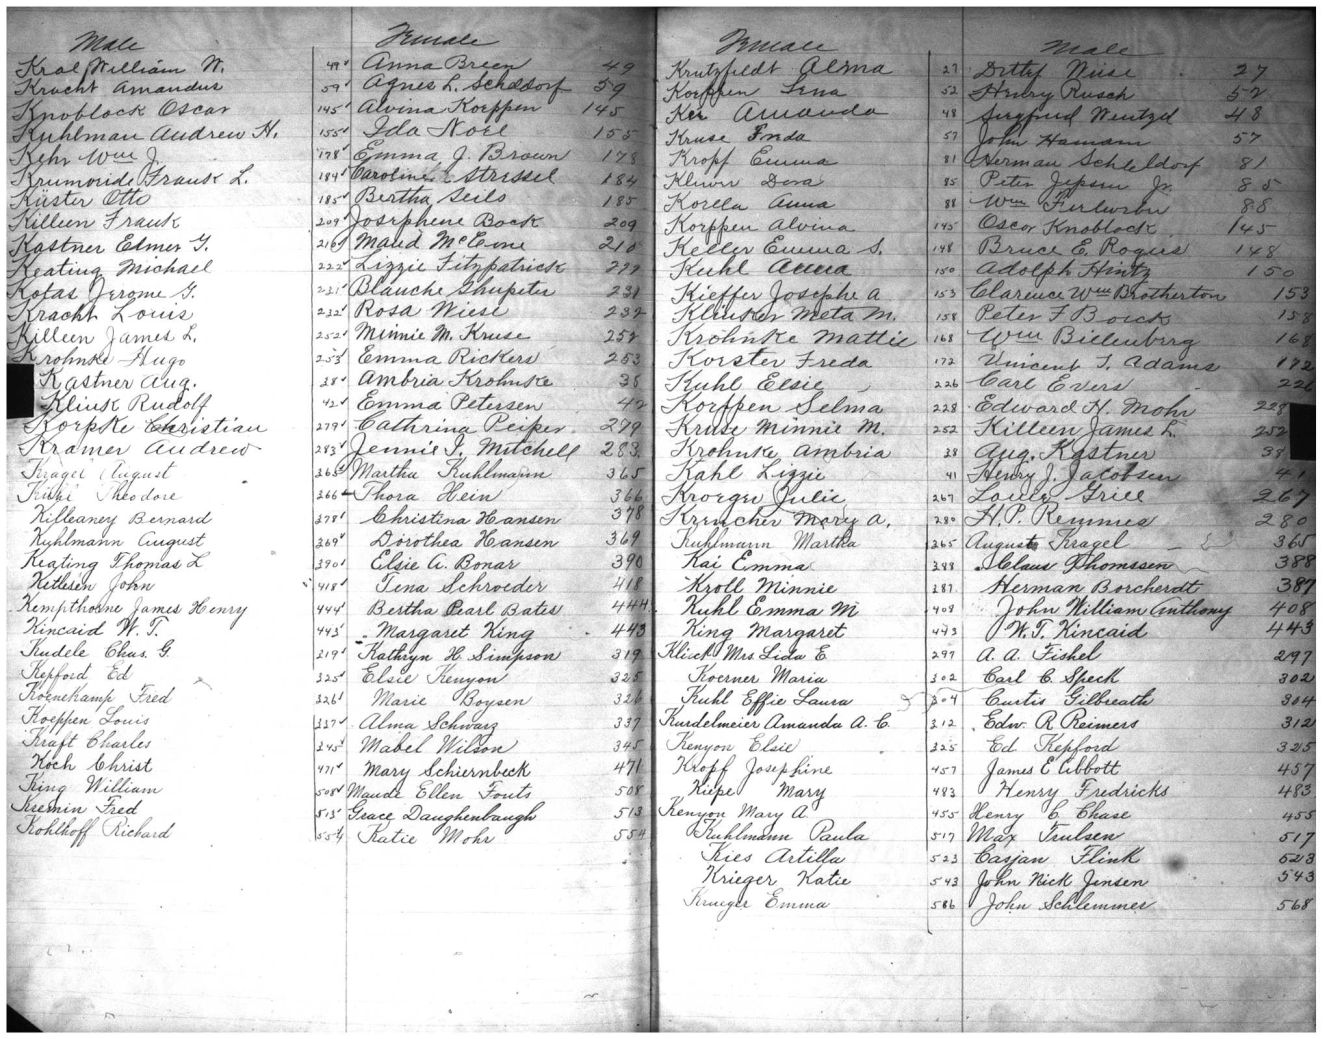 Male Female
Kral William W. 49 Anna Breen 49
Kracht Amandus 59 Agnes L. Scheldorf 59
Knoblock Oscar 145 Alvina Koeppen 145
Kuhlman Andrew H. 155 Ida Noel 155
Kehr Wm J. 178 Emma J. Brown 178
Krumoride Frank L. 184 Caroline Stressel 184
Küster Otto 185 Bertha Seils 185
Killeen Frank 209 Josephene Bock 209
Kastner Elmer G. 210 Maud 210
Keating Michael 222 Lizzie Fitzpatrick 222
Kotas Jerome G. 231 Blauche Shupitar 231
Kracht Louis 232 Rosa Wiese 232
Killeen James L. 252 Minnie M. Kruse 252
Krohnke Hugo 253 Emma Rickers 253
Kastner Aug. 38 Ambria Krohnke 38
Klink Rudolf 42 Emma Petersen 42
Korpke Christian 279 Cathrina Peiper 279
Kramer Andrew 283 Jennie I. Mitchell 283
Kragel August 365 Martha Kuhlmann 365
Theodore 366 Thora Hein 366
Killeaney Bernard 378 Christina Hansen 378
Kuhlmann August 369 Dorothea Hansen 369
Keating Thomas L 390 Elsie A. Bonar 390
Ketlesen John 418 Tena Schroeder 418
Kempthorne James Henry 444 Bertha Pearl Bates 444
Kincaid W. T. 443 Margaret King 443
Kudele Chas. G. 319 Kathryn H. Simpson 319
Kepford Ed 325 Elsie Kenyon 325
Koenekamp Fred 326 Marie Boysen 326
Koeppen Louis 337 Alma Schwarz 337
Kraft Charles 345 Mabel Wilson 345
Koch Christ 471 Mary Schiernbeck 471
King William 508 Maude Ellen Fouts 508
Kremin Fred 513 Grace Daughenbaugh 513
Kohlhoff Richard 554 Katie Mohr 554
Female Male
Krutzfeldt Alma 27 Ditlef Wiese 27
Koeppen Lena 52 Henry Rusch 52
Amanda 48 Siegfried Wentzel 48
Kruse Frida 57 John Hamann 57
Kropf Emma 81 Herman Scheldorf 81
Kluvn Dora 85 Peter Jepsen Jr. 85
Korella Anna 88 Wm 88
Korppen Alvina 145 Oscar Knoblock 145
Keller Emma S. 148 Bruce E. Rogers 148
Kuhl Anna 150 Adolph Hintz 150
Kieffer Josephe a 153 Clarence Wm Brotherton 153
Klinker Meta M. 158 Peter F Boick 158
Krohnke Mattie 168 Wm Bielenberg 168
Korster Freda 172 Vincent T. Adams 172
Kuhl Elsie 226 Carl Evers 226
Korppen Selma 228 Edward H. Mohr 228
Kruse Minnie M. 252 Killeen James L. 252
Krohnke Ambria 38 Aug. Kastner 38
Kahl Lizzie 41 Henry J. Jacobsen 41
Kroeger Julie 267 Louis Grill 267
Krencher Mary A. 280 H. P. Remmes 280
Kuhlmann Martha 365 August Kragel 365
Kai Emma 388 Claus Thomssen 388
Kroll Minnie 387 Herman Borcherdt 387
Kuhl Emma M 408 John William Anthony 408
King Margaret 443 W. T. Kincaid 443
Klick Mrs. Lida E 297 A. A. Fishel 297
Koerner Maria 302 Carl C. Speck 302
Kuhl Effie Laura 304 Curtis Gilbreath 304
Kurdelmeier Amanda A. C. 312 Edw. R. Reimers 312
Kenyon Elsie 325 Ed Kepford 325
Kropf Josephine 457 James E Abbott 457
Kiepe Mary 483 Henry Fredricks 483
Kenyon Mary A 455 Henry C Chase 455
Kuhlmann Paula 517 Max Trulsen 517
Kies Artilla 523 Casjan Flink 523
Krieger Katie 543 John Nick Jensen 543
Krueger Emma 586 John Schlemmer 568